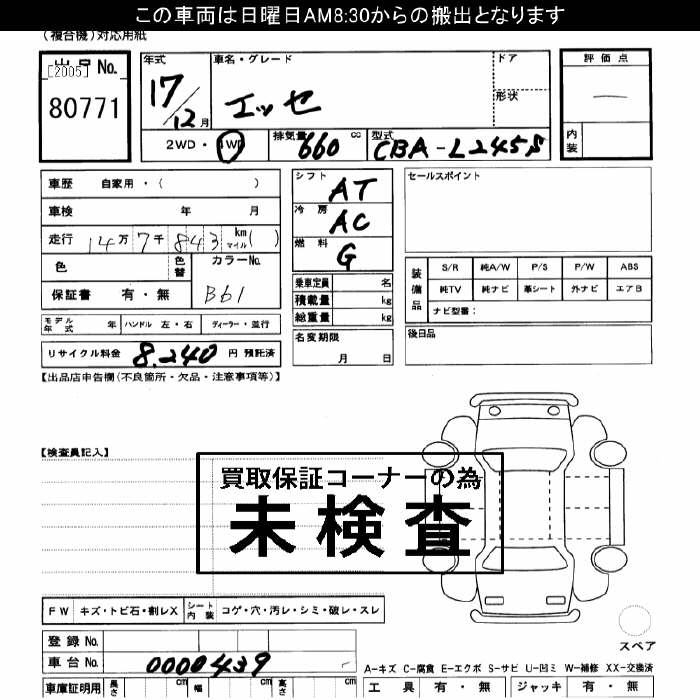 この車両は日曜日AM8:30からの搬出となります
(複合機)対応用紙
出品No. [2005] 80771
年式 17/12月
車名・グレード エッセ
ドア
形状
評価点 —
内装
2WD・4WD
排気量 660 cc
型式 CBA-L245S
車歴 自家用・( )
車検 年 月
走行 14万7千843 km マイル( )
色 色替 カラーNo. B61
保証書 有・無
シフト AT
冷房 AC
燃料 G
乗車定員 名
積載量 kg
総重量 kg
セールスポイント
装備品 S/R 純A/W P/S P/W ABS
純TV 純ナビ 革シート 外ナビ エアB
ナビ型番:
モデル年式 年 ハンドル 左・右 ディーラー・並行
リサイクル料金 8,240 円 預託済
名変期限 月 日
後日品
【出品店申告欄(不良箇所・欠品・注意事項等)】
【検査員記入】
買取保証コーナーの為
未検査
FW キズ・トビ石・割レX シート内装 コゲ・穴・汚レ・シミ・破レ・スレ
登録No.
車台No. 0000439
スペア
A-キズ C-腐食 E-エクボ S-サビ U-凹ミ W-補修 XX-交換済
車庫証明用 長さ cm 幅 cm 高さ cm
工具 有・無 ジャッキ 有・無